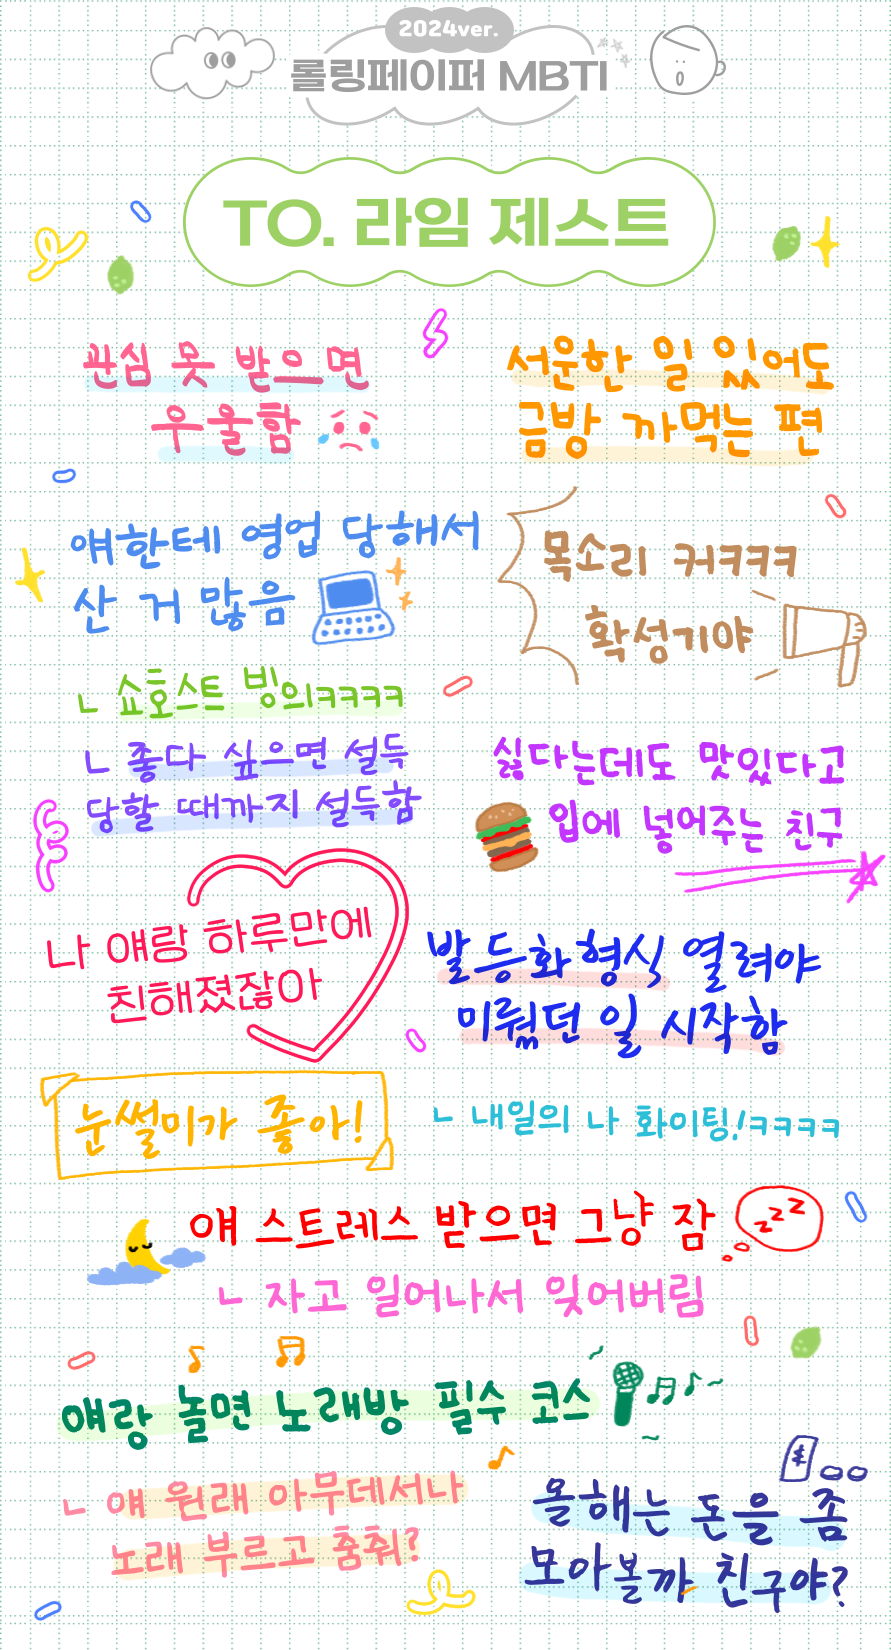 2024ver.
롤링페이퍼 MBTI
TO. 라임 제스트
관심 못 받으면
우울함
서운한 일 있어도
금방 까먹는 편
얘한테 영업 당해서
산 거 많음
목소리 커ㅋㅋㅋ
확성기야
ㄴ 쇼호스트 빙의ㅋㅋㅋㅋ
ㄴ 좋다 싶으면 설득
당할 때까지 설득함
싫다는데도 맛있다고
입에 넣어주는 친구
나 얘랑 하루만에
친해졌잖아
발등화형식 열려야
미뤘던 일 시작함
눈썰미가 좋아!
ㄴ 내일의 나 화이팅!ㅋㅋㅋㅋ
얘 스트레스 받으면 그냥 잠
zzz
ㄴ 자고 일어나서 잊어버림
얘랑 놀면 노래방 필수 코스
ㄴ 얘 원래 아무데서나
노래 부르고 춤춰?
올해는 돈을 좀
모아볼까 친구야?